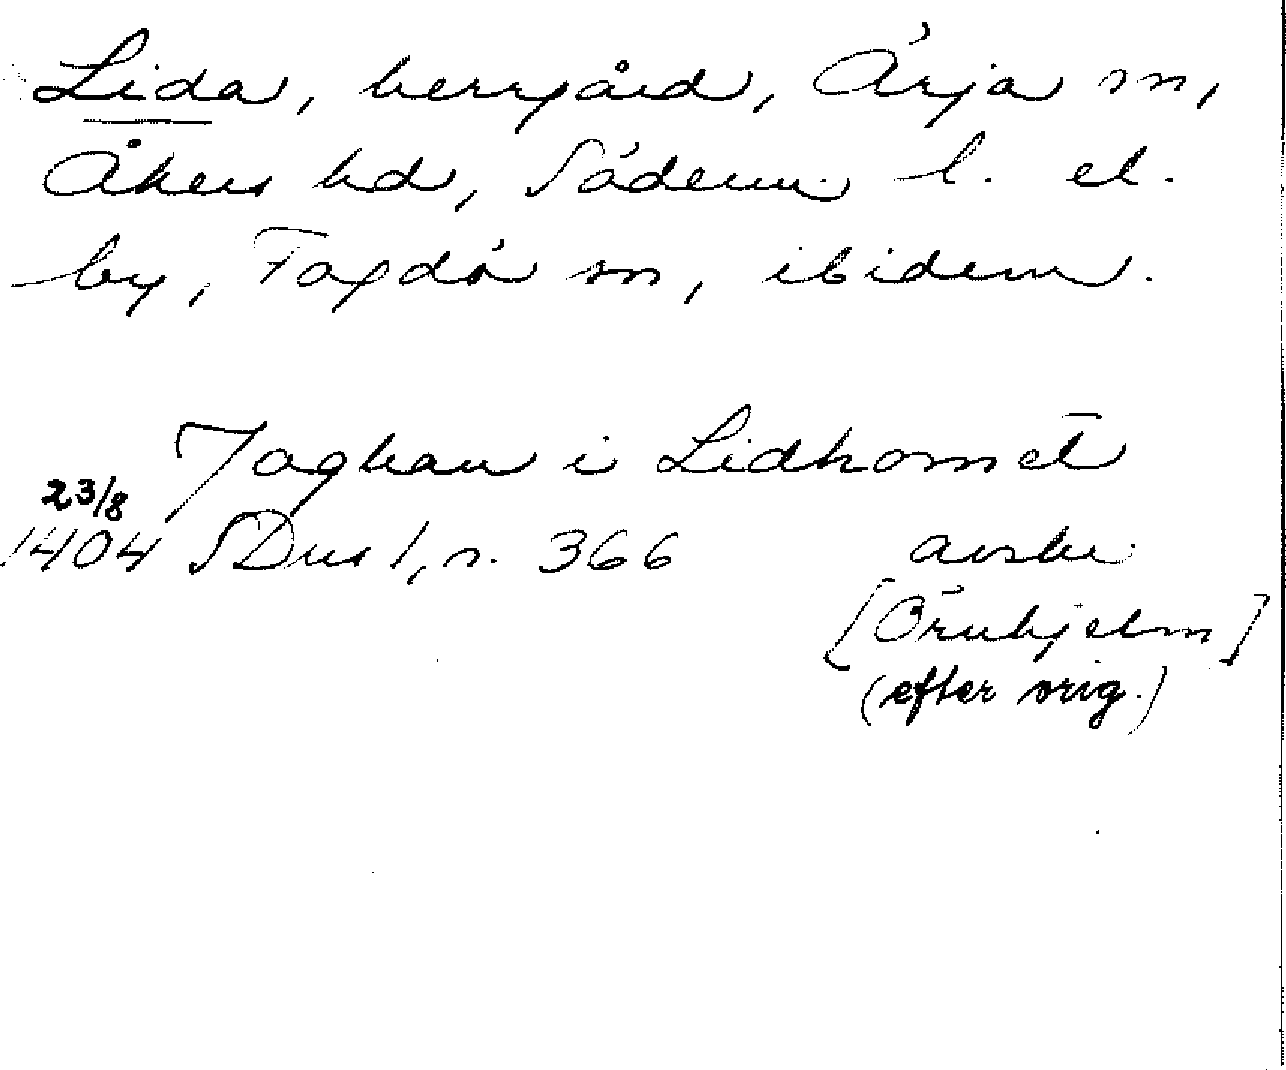 Lida, herrgård, Ärja sn,
Åkers hd, Söderm. l. el.
by, Fogdö sn, ibidem.
Joghan i Lidhom et
23/8
1404 SDns 1, s. 366 avskr.
[Örnhjelm]
(efter orig.)